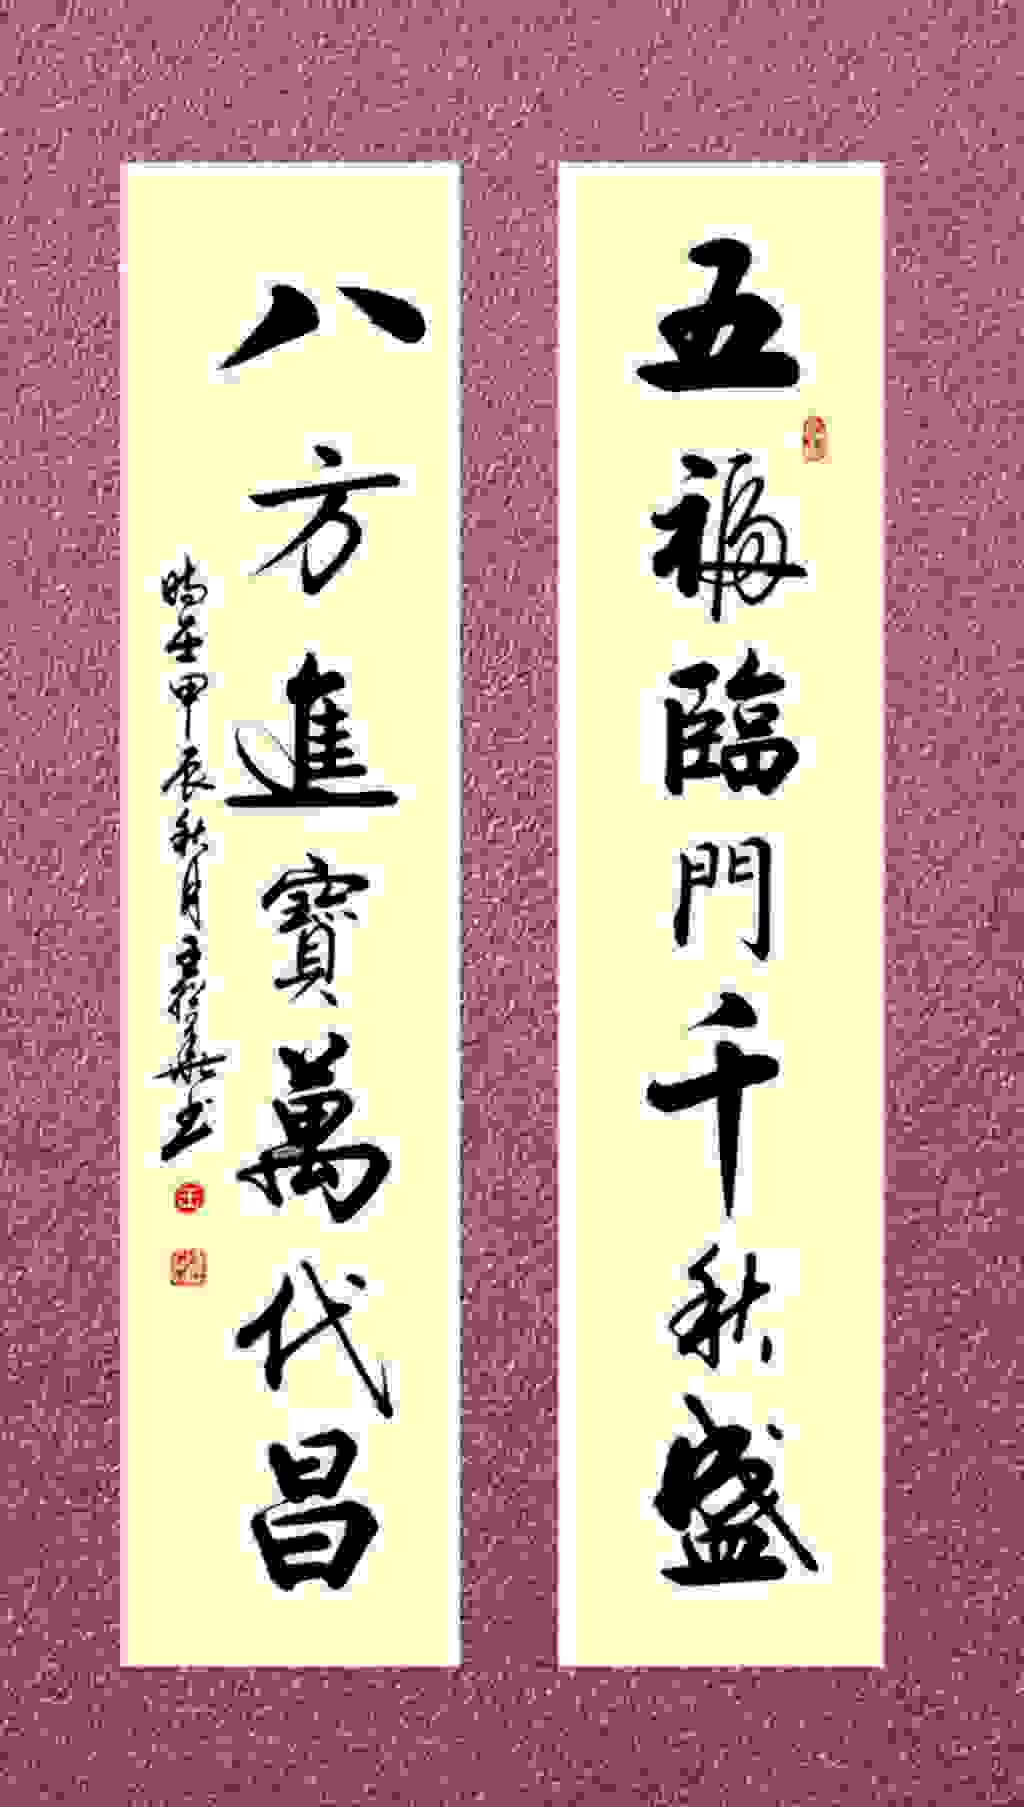 五福臨門千秋盛
八方進寶萬代昌
時在甲辰秋月王松華书